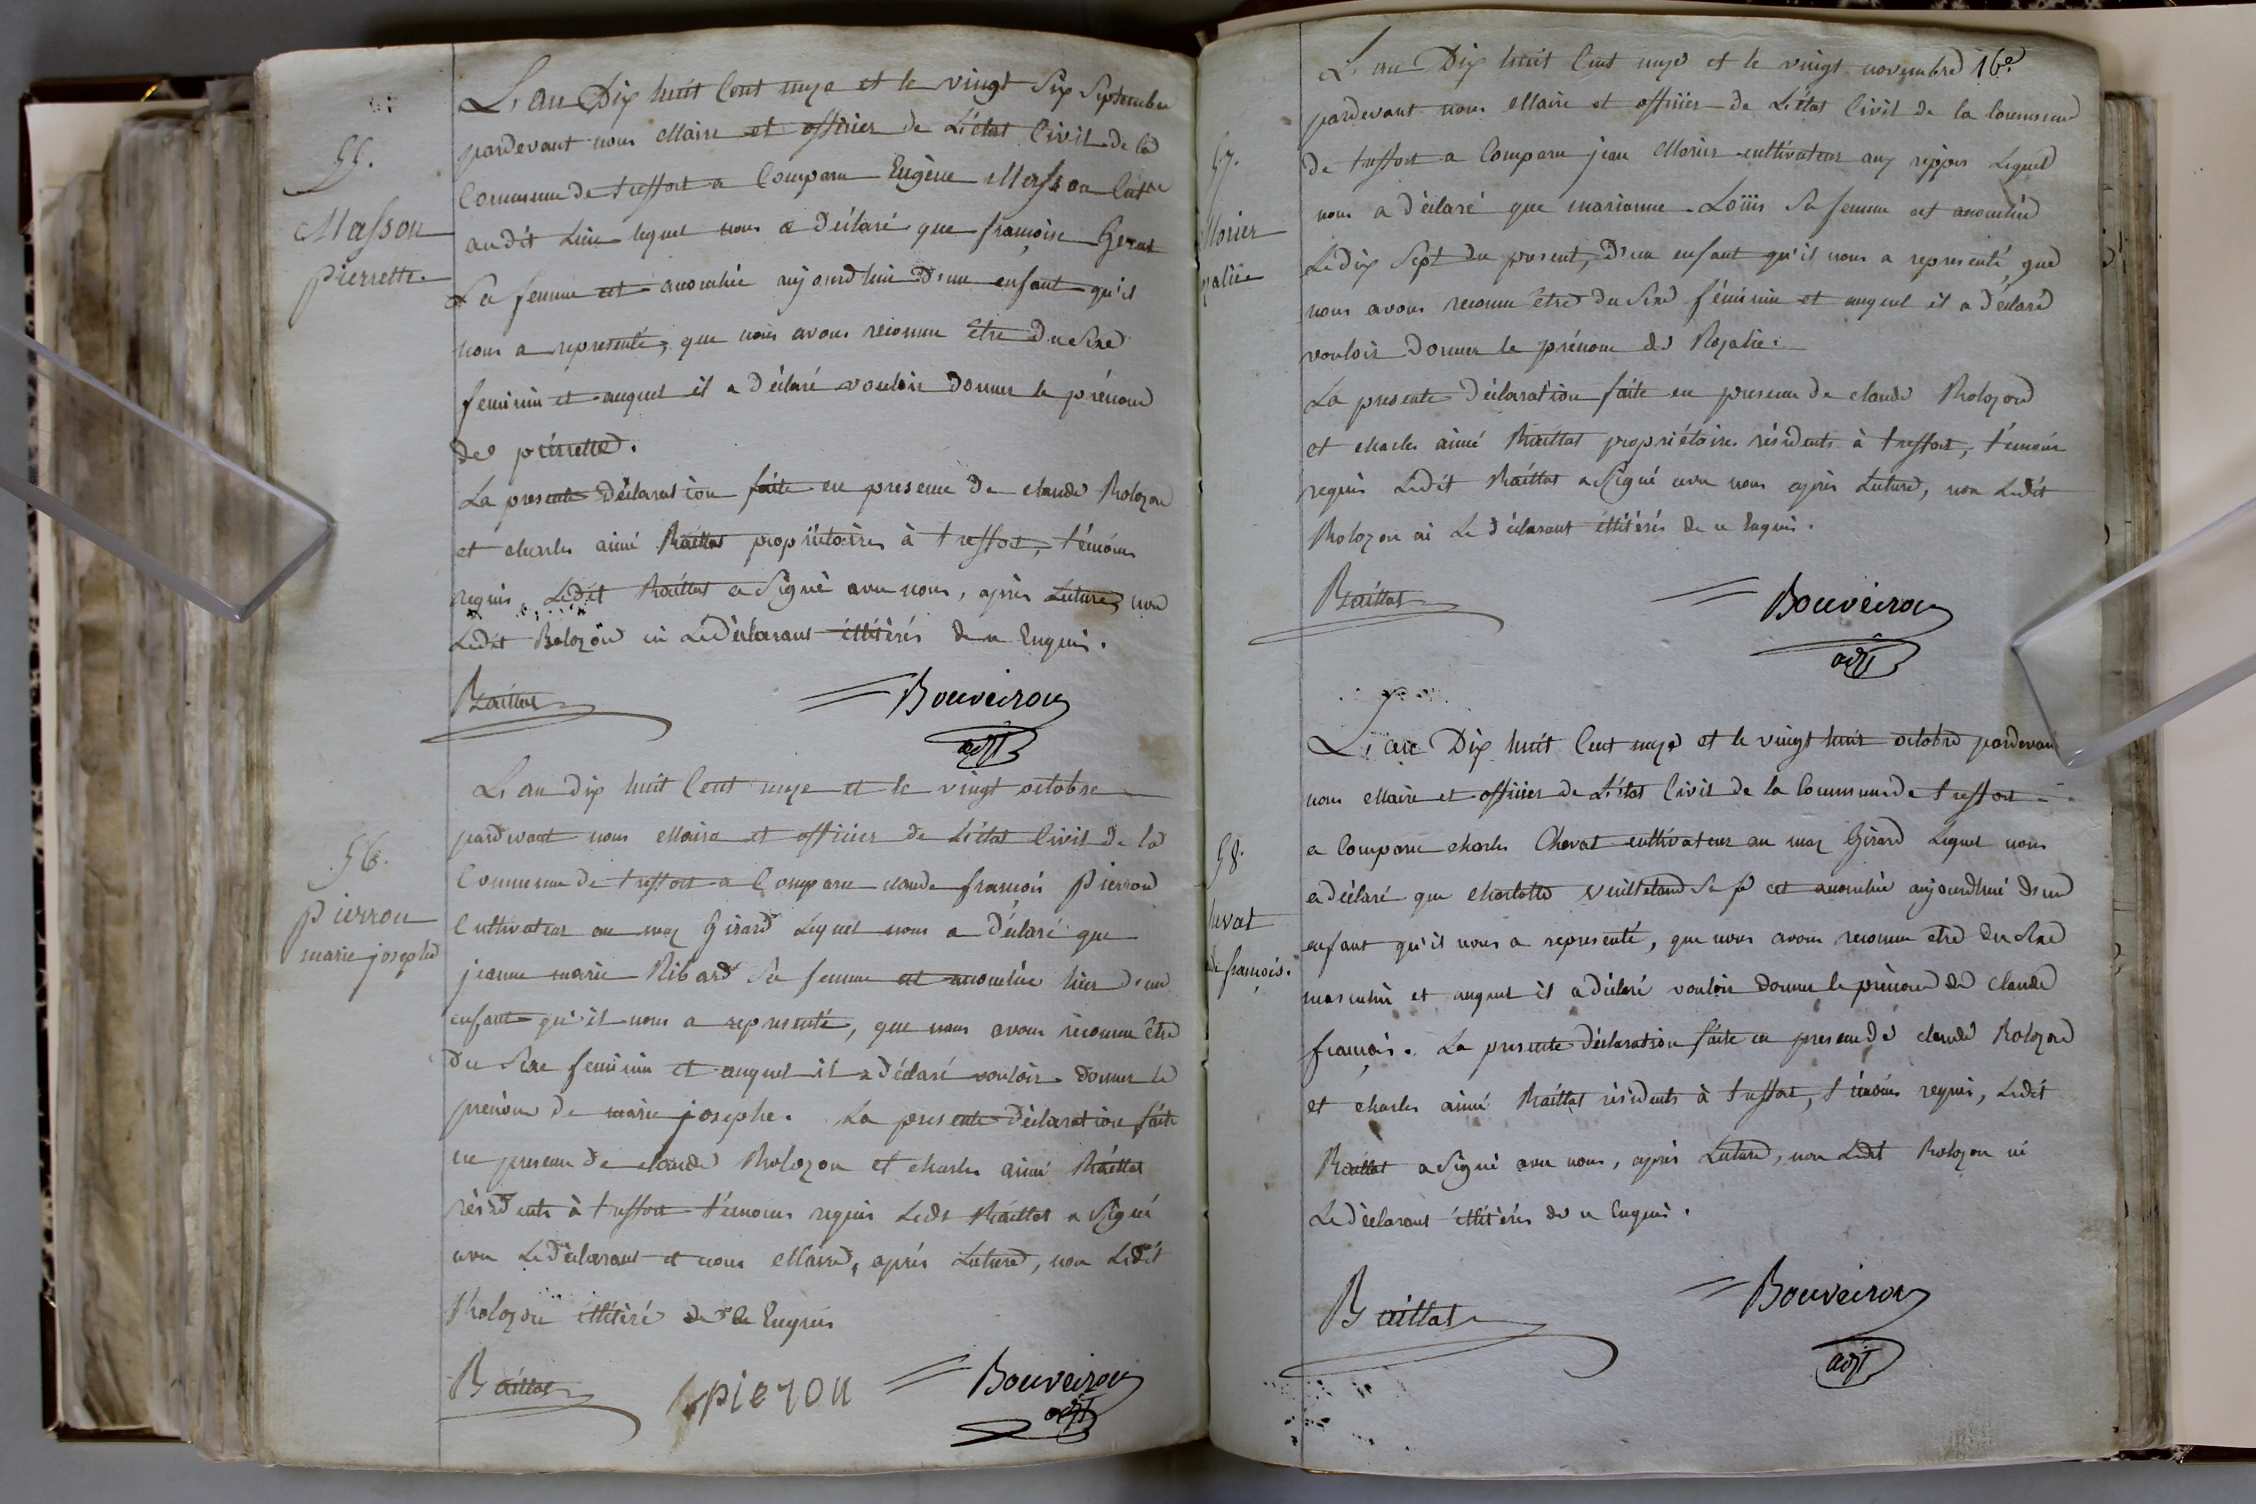 55.
Masson
pierrette
L'an Dix huit Cent onze et le vingt Six Septembre
pardevant nous Maire et officier de L'état Civil de la
Commune de treffort a Comparu Eugène Masson Cult.
audit Lieu lequel nous a Déclaré que françoise
Sa femme est accouchée aujourdhui D'un enfant qu'il
nous a representé, que nous avons reconnu être Du Sexe
feminin et auquel il a Déclaré vouloir donner le prénom
de pierrette.
La presente Déclaration faite en presence De claude Rolozon
et charles aimé Raillat propriétaires à treffort, témoins
requis Ledit Raillat a Signé avec nous, après Lecture, non
Ledit Rolozon ni Le Déclarant illitérés de ce Enquis.
Raillat Bouveiron
adjt
56.
pierron
marie josephe
L'an dix huit Cent onze et le vingt octobre
pardevant nous Maire et officier de L'état Civil De la
Commune de treffort a Comparu claude françois pierron
Cultivateur au maz Girard Lequel nous a Déclaré que
jeanne marie Ribard Sa femme est accouchée hier d'un
enfant qu'il nous a representé, que nous avons reconnu être
Du Sexe feminin et auquel il a Déclaré vouloir donner le
prénom de marie josephe. La presente Déclaration faite
en presence de claude Rolozon et charles aimé Raillat
résidents à treffort témoins requis Ledt Raillat a Signé
avec Le Déclarant et nous Maire, après Lecture, non Ledit
Rolozon illitéré de ce Enquis
Raillat pieron Bouveiron
adjt
57.
Morier
zalie
L'an Dix huit Cent onze et le vingt novembre 16e.
pardevant nous Maire et officier de L'état Civil de la Commune
de treffort a Comparu jean Morier cultivateur aux Lequel
nous a déclaré que marianne Louis Sa femme est accouchée
Le dix Sept du present, D'un enfant qu'il nous a representé, que
nous avons reconnu être du Sexe féminin et auquel il a Déclaré
vouloir Donner le prénom de Rozalie.
La presente Déclaration faite en presence de claude Rolozon
et charles aimé Raillat propriétaires résidents à treffort, témoins
requis Ledit Raillat a Signé avec nous après Lecture, non Ledit
Rolozon ni Le déclarant illitérés de ce Enquis.
Raillat Bouveiron
adjt
58.
hevat
de françois.
L'an Dix huit Cent onze et le vingt huit octobre pardevant
nous Maire et officier de L'état Civil de la Commune de treffort
a Comparu charles Chevat cultivateur au maz Girard Lequel nous
a déclaré que charlotte Sa fe est accouchée aujourdhui d'un
enfant qu'il nous a representé, que nous avons reconnu etre du Sexe
masculin et auquel il a déclaré vouloir donner le prénom de claude
françois. La presente déclaration faite en presence de claude Rolozon
et charles aimé Raillat résidents à treffort, témoins requis, Ledit
Raillat a Signé avec nous, après Lecture, non Ledit Rolozon ni
Le déclarant illitérés de ce Enquis.
Raillat Bouveiron
adjt